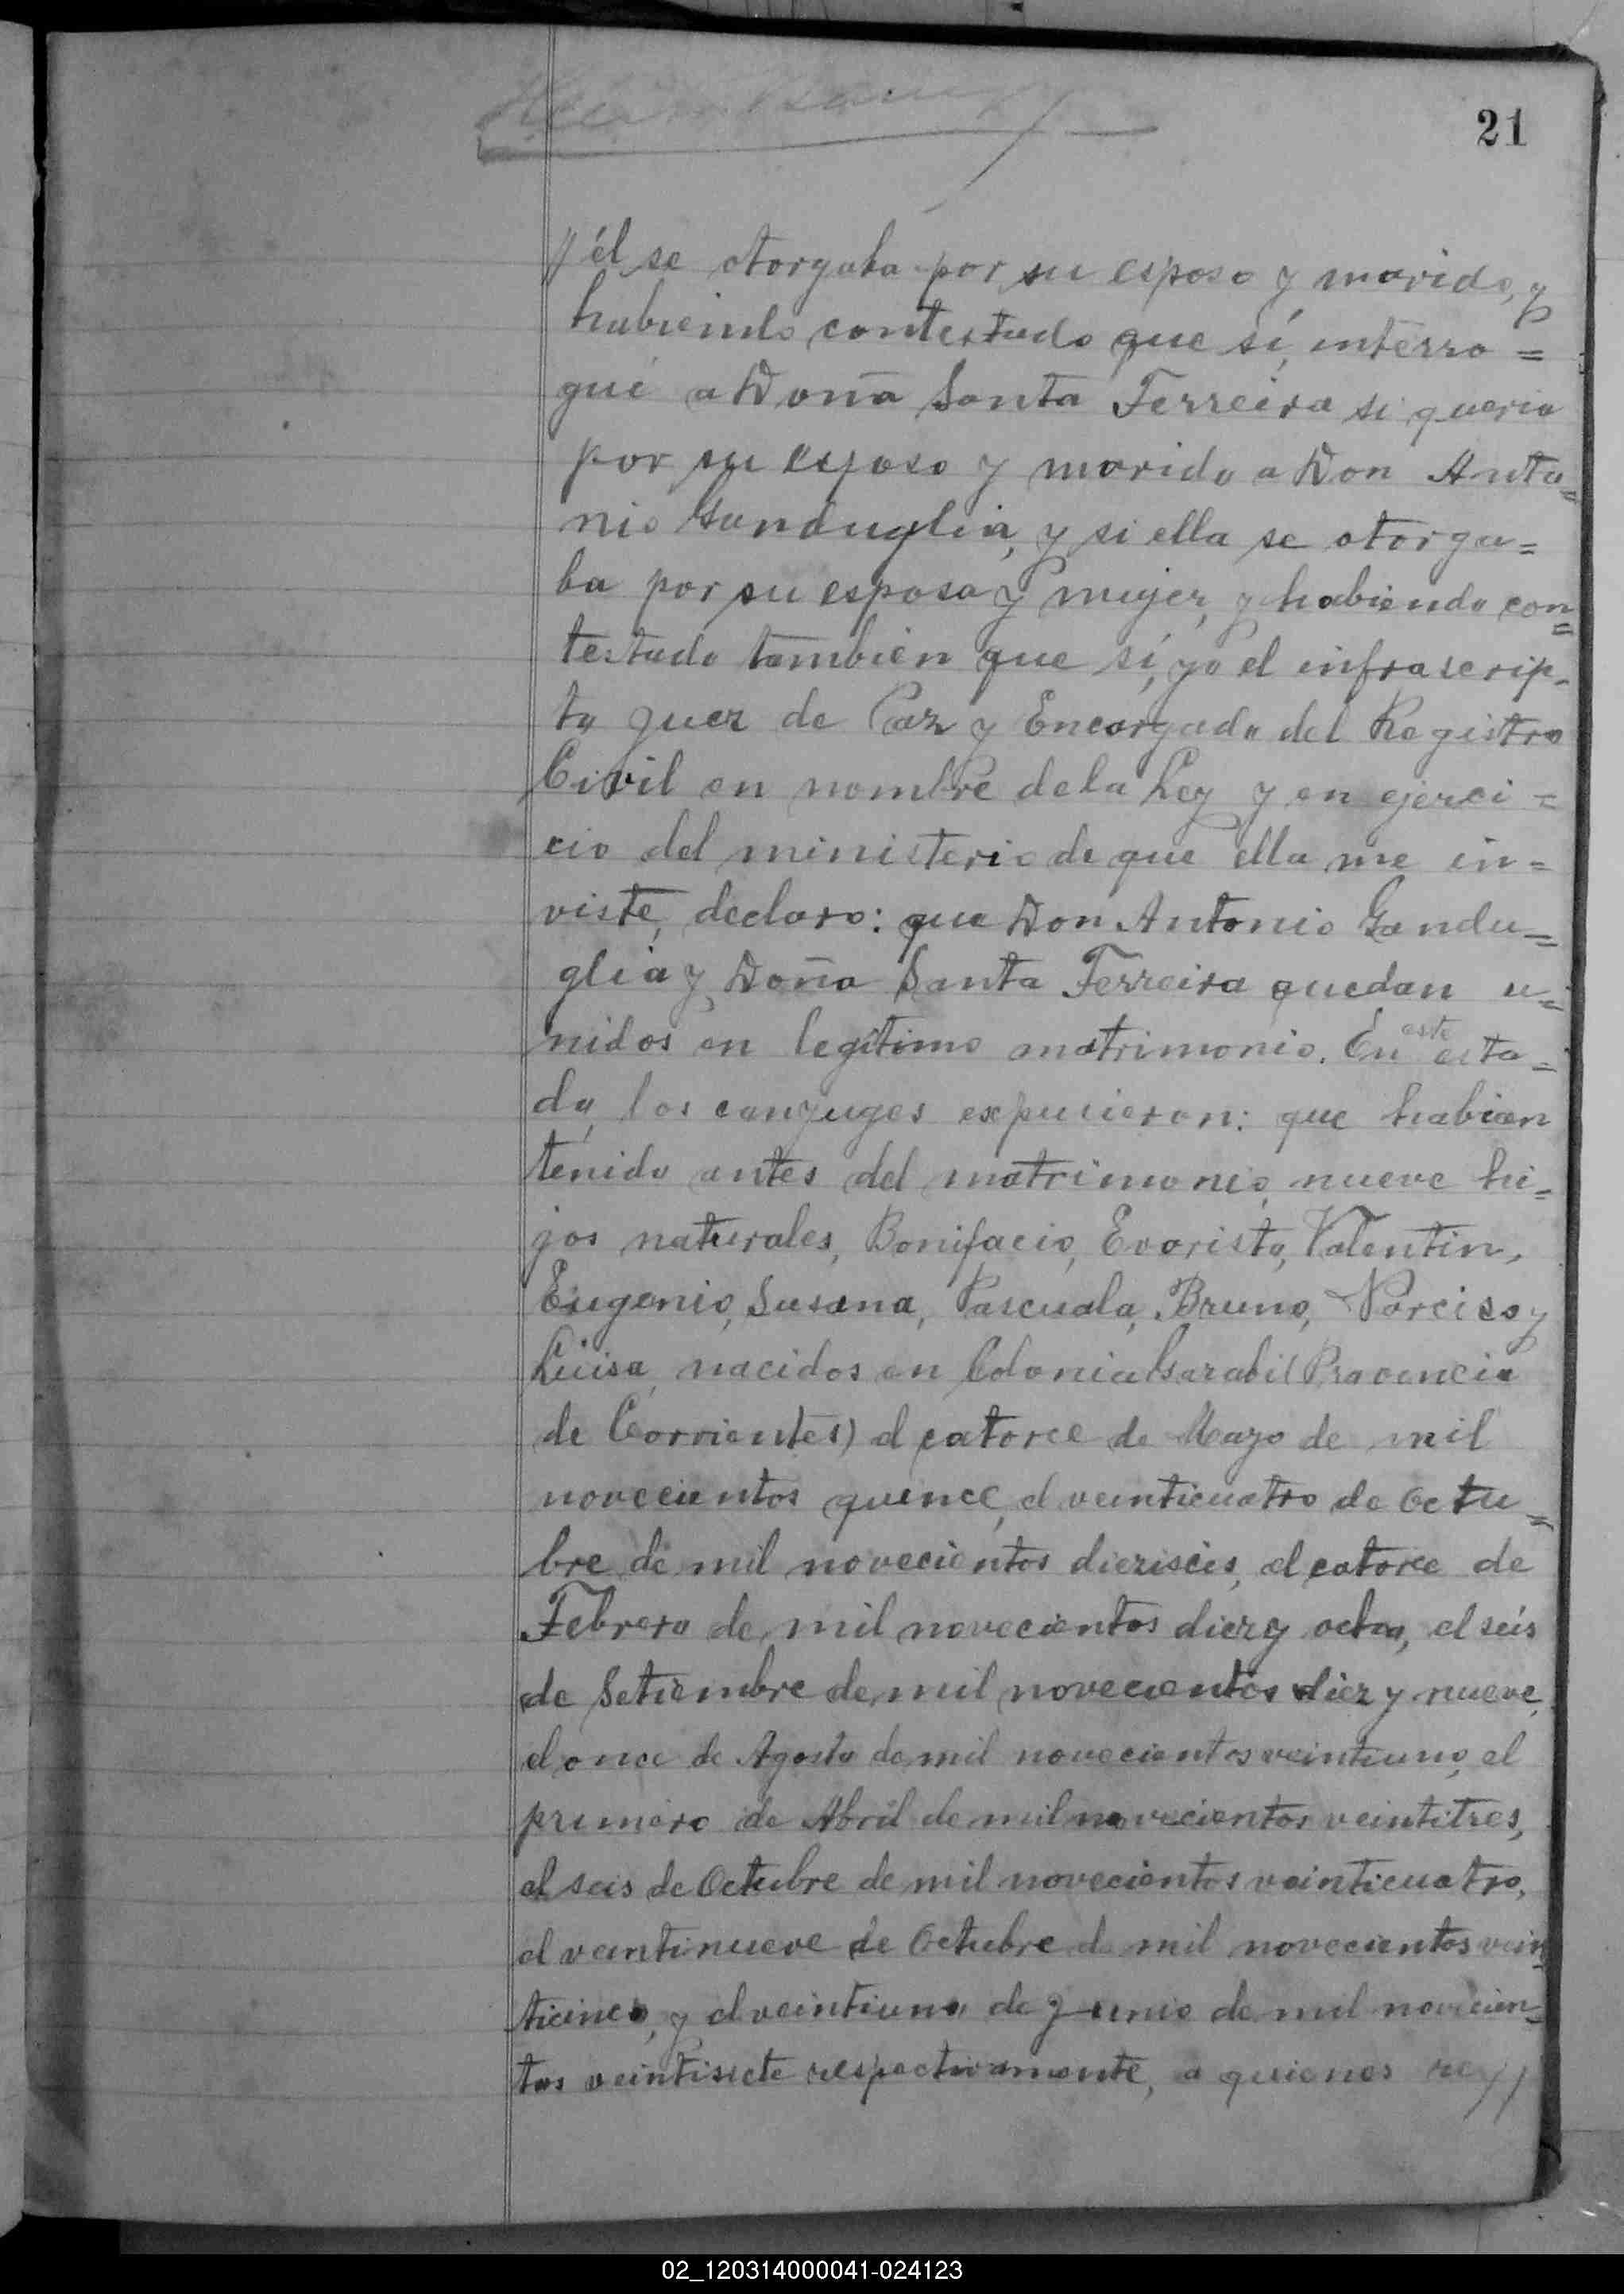 21
él se otorgaba por su esposo y marido, y
habiendo contestado que sí, interro=
gué a Doña Santa Ferreira si queria
por su esposo y marido a Don Anto=
nio Ganduglia, y si ella se otorga=
ba por su esposa y mujer, y habiendo con=
testado tambien que sí, yo el infrascrip-
to Juez de Paz y Encargado del Registro
Civil en nombre de la Ley y en ejerci=
cio del ministerio de que ella me in=
viste, declaro: que Don Antonio Gandu=
glia y Doña Santa Ferreira quedan u=
nidos en legítimo matrimonio. En este esta=
do, los conyuges expusieron: que habian
tenido antes del matrimonio, nueve hi=
jos naturales, Bonifacio, Evaristo, Valentin,
Eugenio, Susana, Pascuala, Bruno, Narciso y
Luisa, nacidos en Colonia Garabí (Provincia
de Corrientes) el catorce de Mayo de mil
novecientos quince, el veinticuatro de Octu=
bre de mil novecientos dieziseis, el catorce de
Febrero de mil novecientos diez y ocho, el seis
de Setiembre de mil novecientos diez y nueve,
el once de Agosto de mil novecientos veintiuno, el
primero de Abril de mil novecientos veintitres,
el seis de Octubre de mil novecientos veinticuatro,
el veintinueve de Octubre de mil novecientos vein=
ticinco, y el veintiuno de Junio de mil novecien=
tos veintisiete respectivamente, a quienes re//
02_120314000041-024123